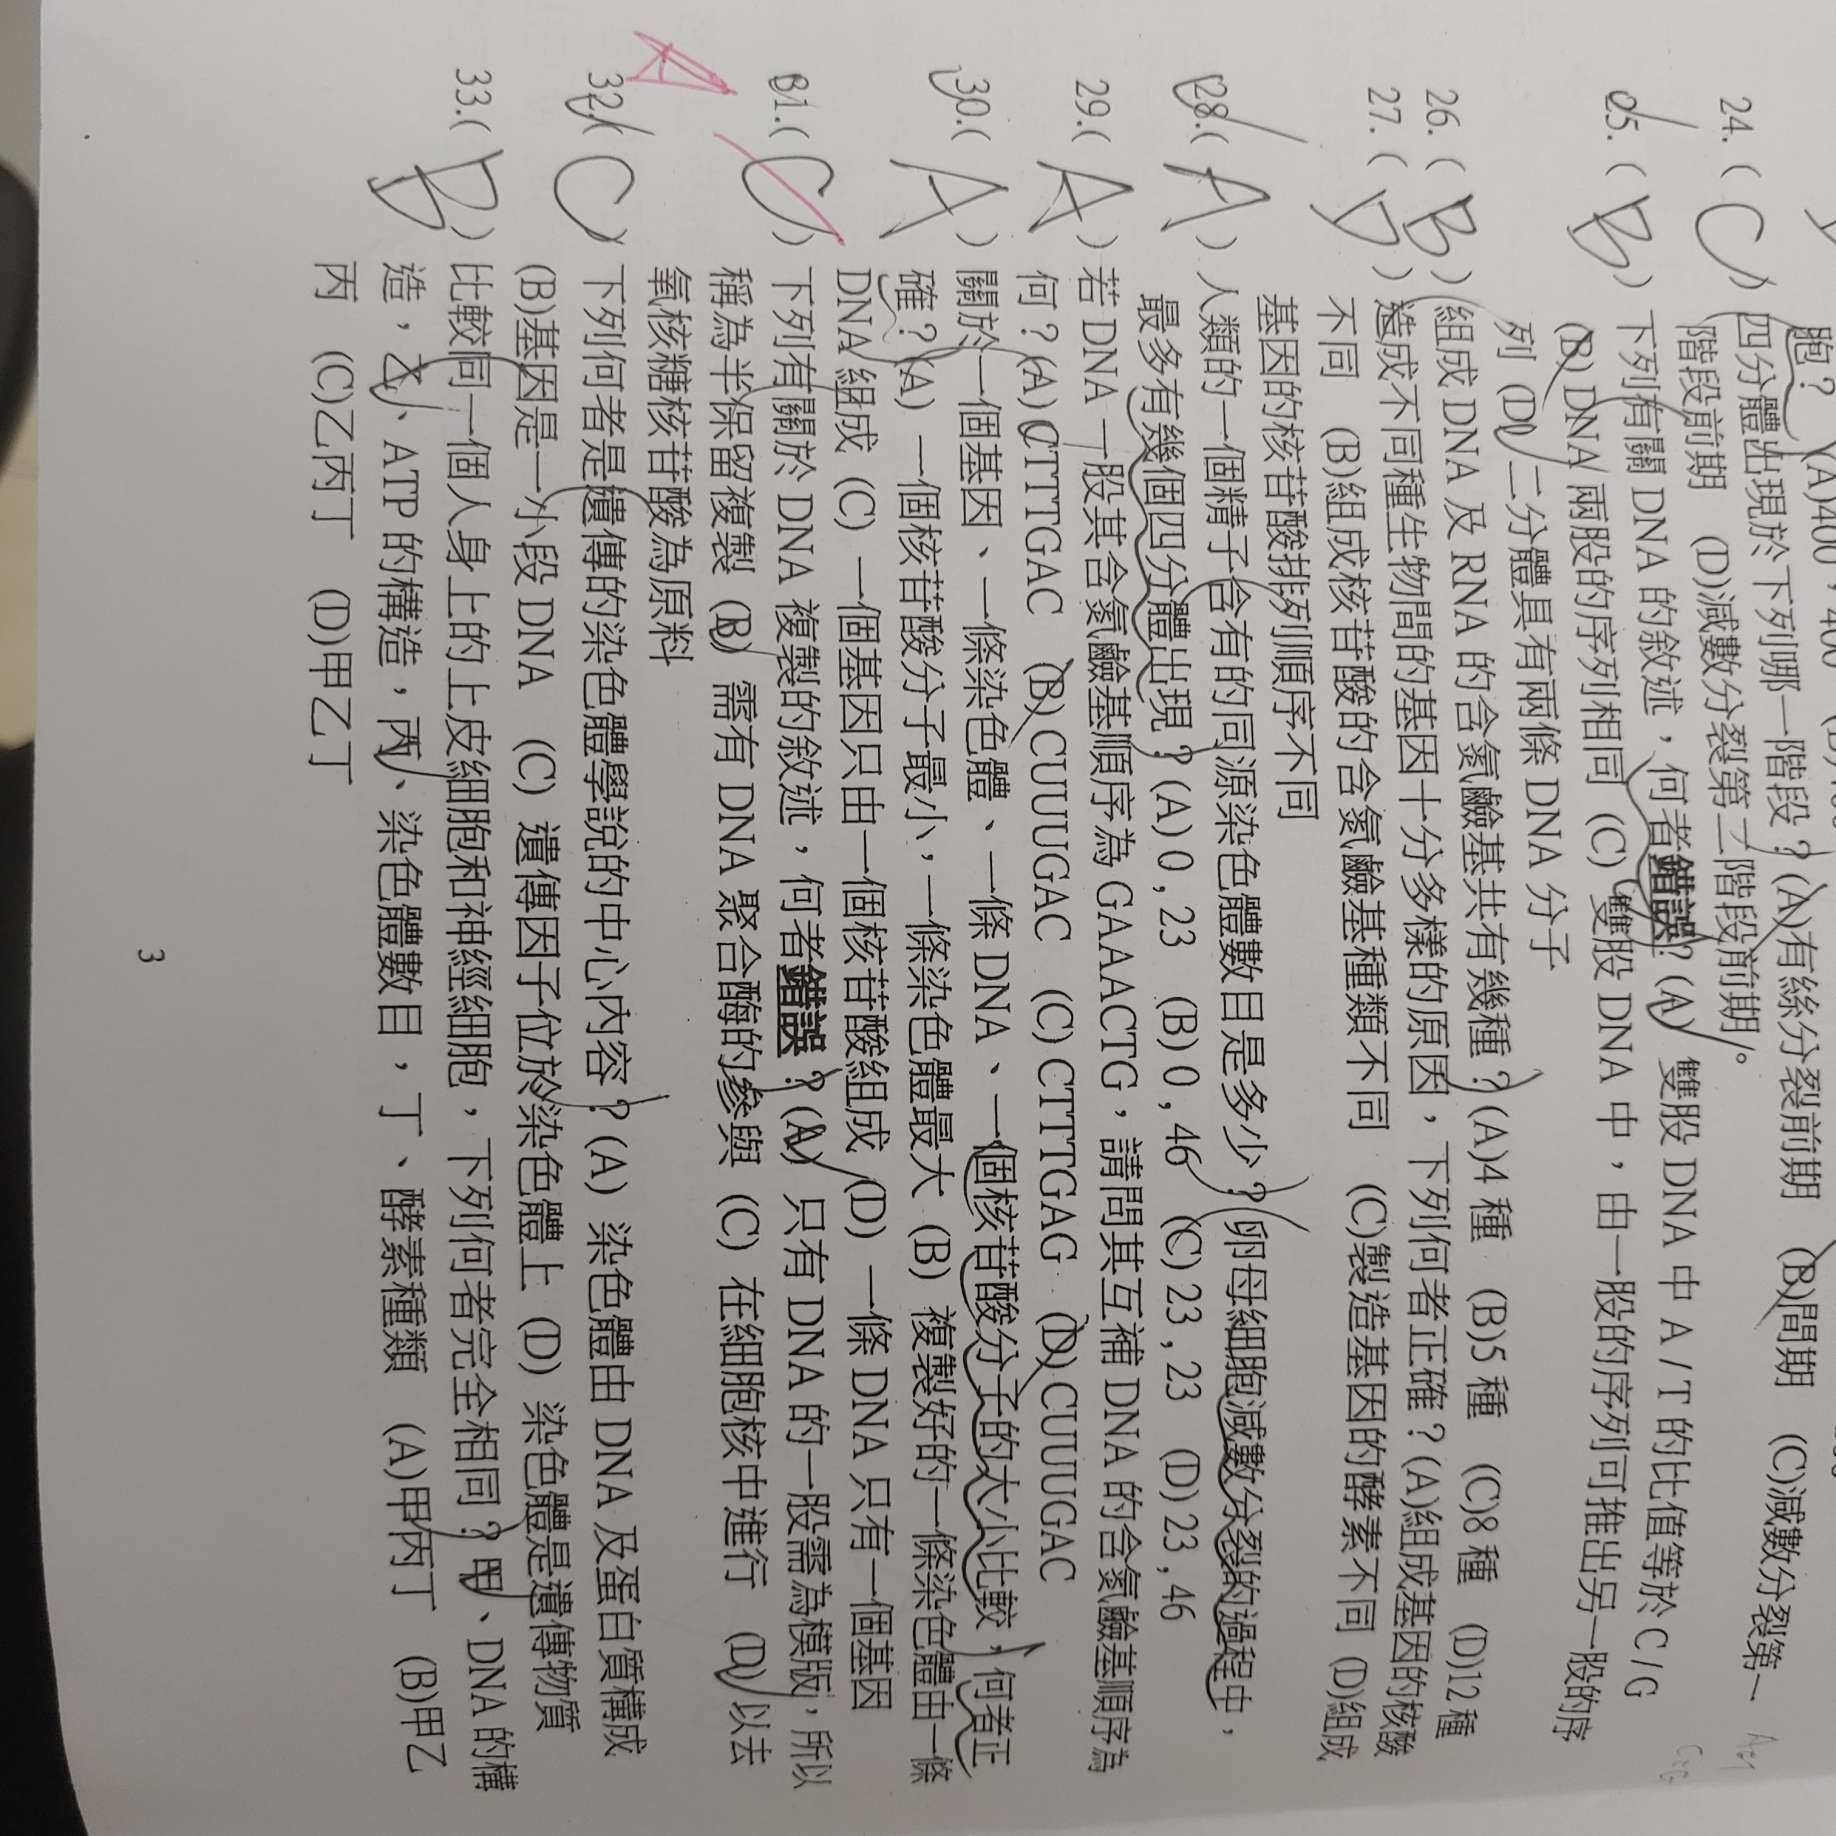 胞？ (A)400，400
24.( C ) 四分體出現於下列哪一階段？(A)有絲分裂前期 (B)間期 (C)減數分裂第一
階段前期 (D)減數分裂第二階段前期。
25.( B ) 下列有關 DNA 的敘述，何者錯誤？(A) 雙股 DNA 中 A / T 的比值等於 C / G
(B) DNA 兩股的序列相同 (C) 雙股 DNA 中，由一股的序列可推出另一股的序
列 (D) 二分體具有兩條 DNA 分子
26.( B ) 組成 DNA 及 RNA 的含氮鹼基共有幾種？(A)4 種 (B)5 種 (C)8 種 (D)12 種
27.( D ) 造成不同種生物間的基因十分多樣的原因，下列何者正確？(A)組成基因的核酸
不同 (B)組成核苷酸的含氮鹼基種類不同 (C)製造基因的酵素不同 (D)組成
基因的核苷酸排列順序不同
28.( A ) 人類的一個精子含有的同源染色體數目是多少？卵母細胞減數分裂的過程中，
最多有幾個四分體出現？(A) 0 , 23 (B) 0 , 46 (C) 23 , 23 (D) 23 , 46
29.( A ) 若 DNA 一股其含氮鹼基順序為 GAAACTG，請問其互補 DNA 的含氮鹼基順序為
何？(A) CTTTGAC (B) CUUUGAC (C) CTTTGAG (D) CUUUGAC
30.( A ) 關於一個基因、一條染色體、一條 DNA、一個核苷酸分子的大小比較，何者正
確？(A) 一個核苷酸分子最小，一條染色體最大 (B) 複製好的一條染色體由一條
DNA 組成 (C) 一個基因只由一個核苷酸組成 (D) 一條 DNA 只有一個基因
31.( C ) 下列有關於 DNA 複製的敘述，何者錯誤？(A) 只有 DNA 的一股需為模版，所以
稱為半保留複製 (B) 需有 DNA 聚合酶的參與 (C) 在細胞核中進行 (D) 以去
氧核糖核苷酸為原料
A
32.( C ) 下列何者是遺傳的染色體學說的中心內容？(A) 染色體由 DNA 及蛋白質構成
(B)基因是一小段 DNA (C) 遺傳因子位於染色體上 (D) 染色體是遺傳物質
33.( B ) 比較同一個人身上的上皮細胞和神經細胞，下列何者完全相同？甲、DNA 的構
造，乙、ATP 的構造，丙、染色體數目，丁、酵素種類 (A)甲丙丁 (B)甲乙
丙 (C)乙丙丁 (D)甲乙丁
3